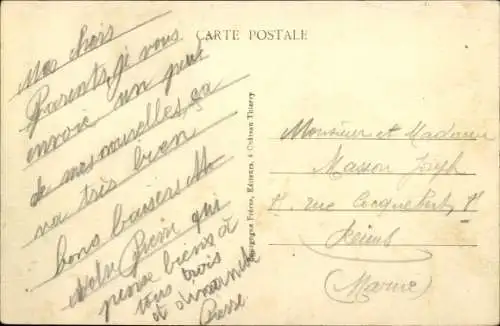 CARTE POSTALE
Mes chers
Parents, je vous
envoie un petit
de mes nouvelles, ça
va très bien
bons baisers
Votre Pierre qui
pense bien à
tous trois
à dimanche
Pierre
Bourgogne Frères, Editeurs, à Château-Thierry
Monsieur et Madame
Masson Joseph
rue Cocquebert,
Reims
(Marne)